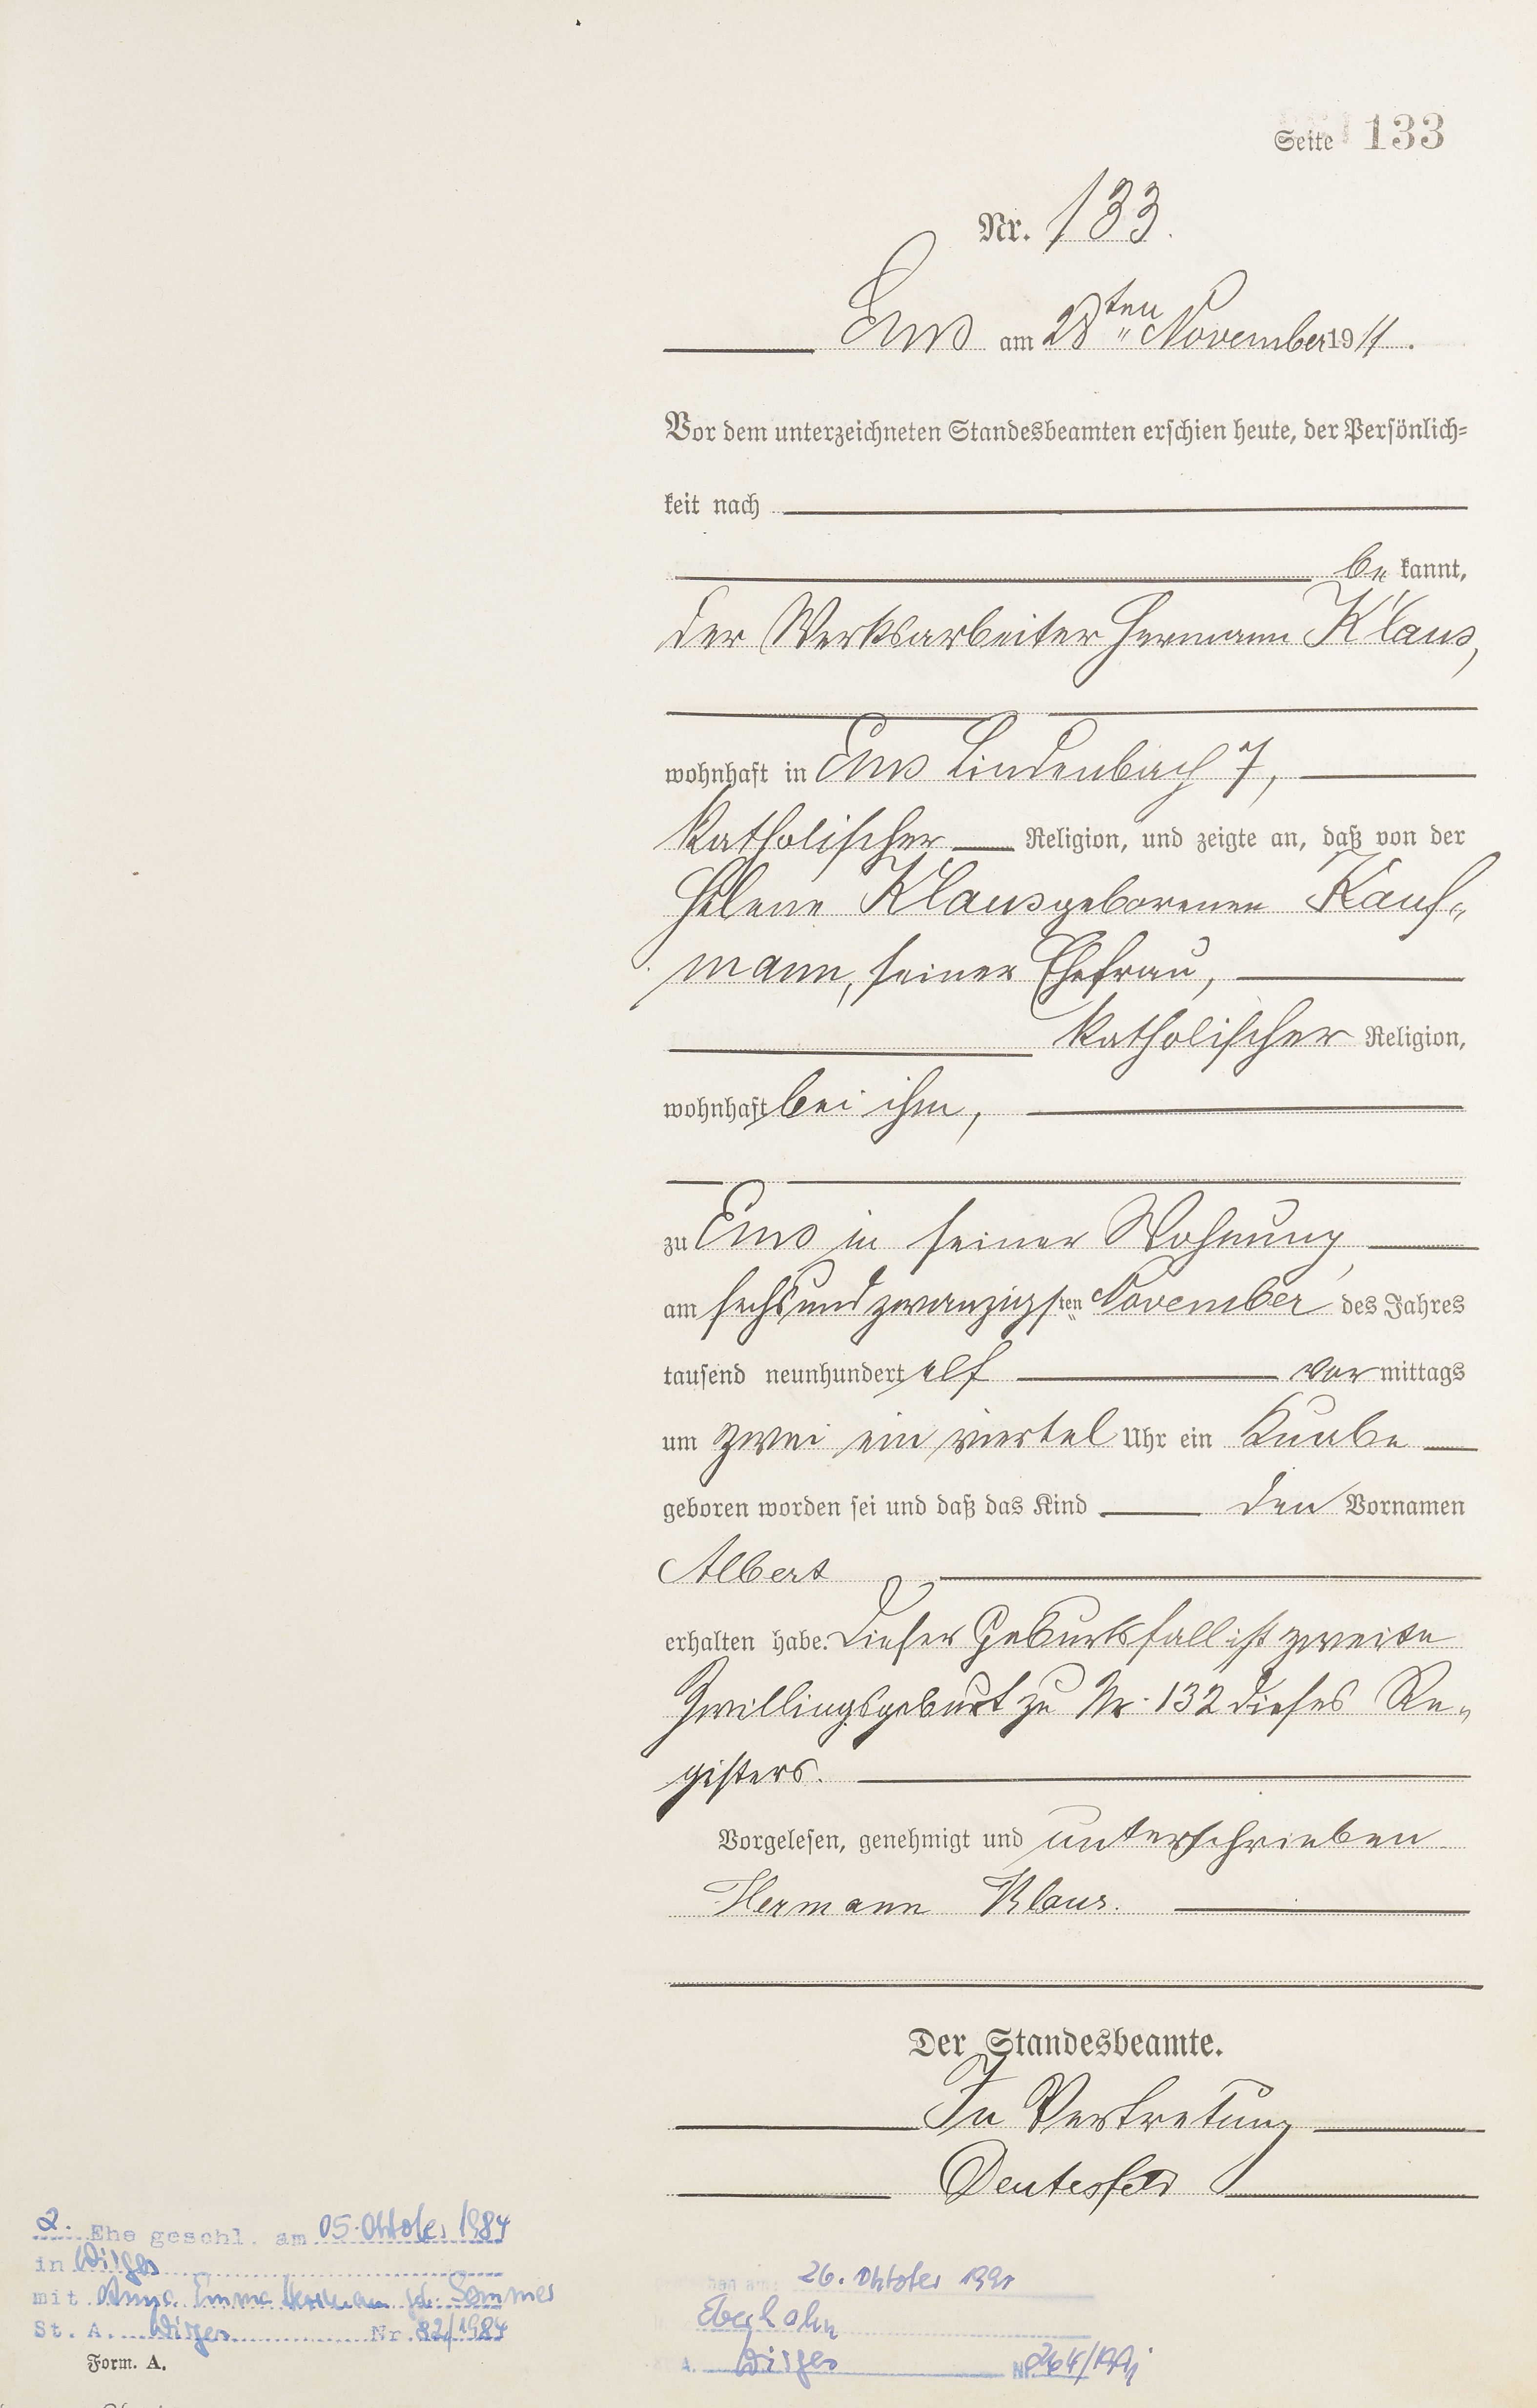 Seite 133
Nr. 133.
Ems am 28ten November 1911.
Vor dem unterzeichneten Standesbeamten erschien heute, der Persönlich-
keit nach
be kannt,
der Werksarbeiter Hermann Klaus,
wohnhaft in Ems Lindenbach 7,
katholischer Religion, und zeigte an, daß von der
Helene Klaus geborenen Kauf-
mann, seiner Ehefrau,
katholischer Religion,
wohnhaft bei ihm,
zu Ems in seiner Wohnung,
am sechsundzwanzigsten November des Jahres
tausend neunhundert elf vor mittags
um zwei ein viertel Uhr ein Knabe
geboren worden sei und daß das Kind den Vornamen
Albert
erhalten habe. Dieser Geburtsfall ist zweite
Zwillingsgeburt zu Nr. 132 dieses Re-
gisters.
Vorgelesen, genehmigt und unterschrieben
Hermann Klaus.
Der Standesbeamte.
In Vertretung
2. Ehe geschl. am 05. Oktober 1984
in Wirges
mit Anna Emma geb. Sommer
St. A. Wirges Nr. 82/1984
Form. A.
am 26. Oktober 1991
Ebernhahn
A. Wirges Nr. 264/1991